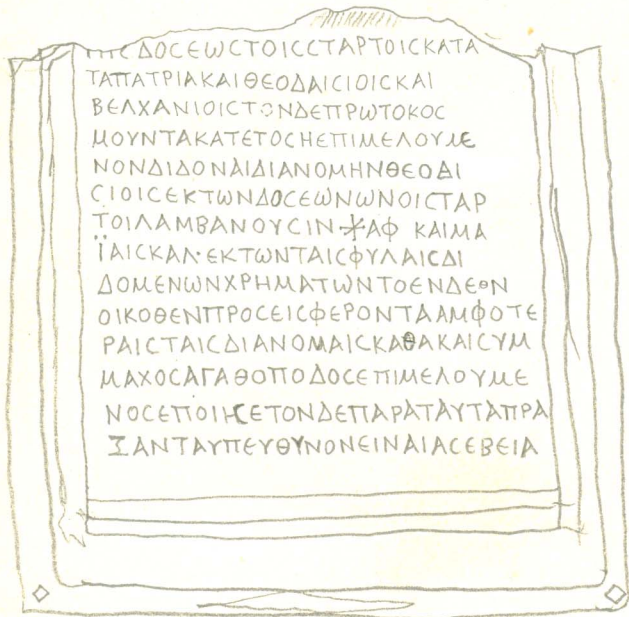 ΤΗϹΔΟϹΕΩϹΤΟΙϹϹΤΑΡΤΟΙϹΚΑΤΑ
ΤΑΠΑΤΡΙΑΚΑΙΘΕΟΔΑΙϹΙΟΙϹΚΑΙ
ΒΕΛΧΑΝΙΟΙϹΤΟΝΔΕΠΡΩΤΟΚΟϹ
ΜΟΥΝΤΑΚΑΤΕΤΟϹΗΕΠΙΜΕΛΟΥΜΕ
ΝΟΝΔΙΔΟΝΑΙΔΙΑΝΟΜΗΝΘΕΟΔΙ
ϹΙΟΙϹΕΚΤΩΝΔΟϹΕΩΝΩΝΟΙϹΤΑΡ
ΤΟΙΛΑΜΒΑΝΟΥϹΙΝ·𐆖ΑΦ ΚΑΙΜΑ
ΪΑΙϹΚΑΛ·ΕΚΤΩΝΤΑΙϹΦΥΛΑΙϹΔΙ
ΔΟΜΕΝΩΝΧΡΗΜΑΤΩΝΤΟΕΝΔΕΟΝ
ΟΙΚΟΘΕΝΠΡΟϹΕΙϹΦΕΡΟΝΤΑΑΜΦΟΤΕ
ΡΑΙϹΤΑΙϹΔΙΑΝΟΜΑΙϹΚΑΘΑΚΑΙϹΥΜ
ΜΑΧΟϹΑΓΑΘΟΠΟΔΟϹΕΠΙΜΕΛΟΥΜΕ
ΝΟϹΕΠΟΙΗϹΕΤΟΝΔΕΠΑΡΑΤΑΥΤΑΠΡΑ
ΞΑΝΤΑΥΠΕΥΘΥΝΟΝΕΙΝΑΙΑϹΕΒΕΙΑ